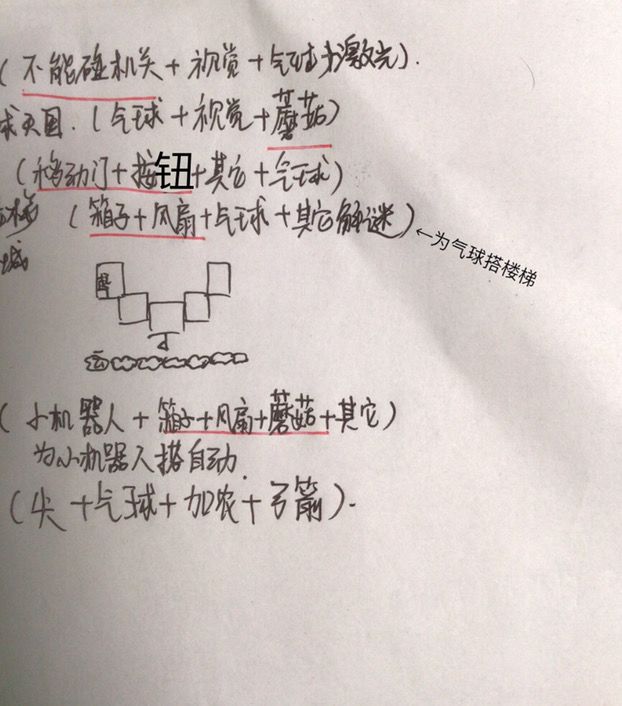 (不能碰机关+视觉+气球+激光).
球天国.(气球+视觉+蘑菇)
(移动门+按钮+其它+气球)
梯 (箱子+风扇+气球+其它解谜)
←为气球搭楼梯
城
(小机器人+箱子+风扇+蘑菇+其它)
为小机器人搭自动.
(尖+气球+加农+弓箭).